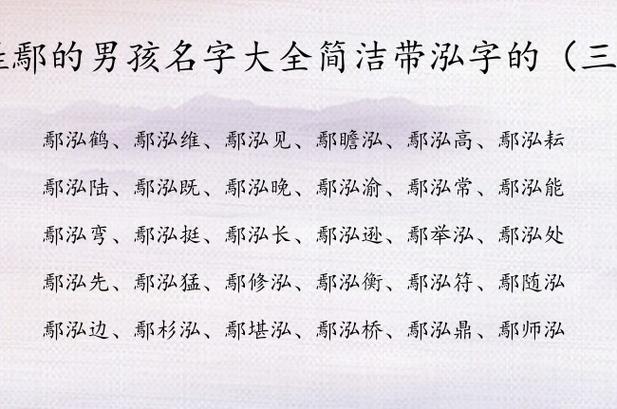 鄢的男孩名字大全简洁带泓字的（三
鄢泓鹤、鄢泓维、鄢泓见、鄢瞻泓、鄢泓高、鄢泓耘
鄢泓陆、鄢泓既、鄢泓晚、鄢泓渝、鄢泓常、鄢泓能
鄢泓弯、鄢泓挺、鄢泓长、鄢泓逊、鄢举泓、鄢泓处
鄢泓先、鄢泓猛、鄢修泓、鄢泓衡、鄢泓符、鄢随泓
鄢泓边、鄢杉泓、鄢堪泓、鄢泓桥、鄢泓鼎、鄢师泓